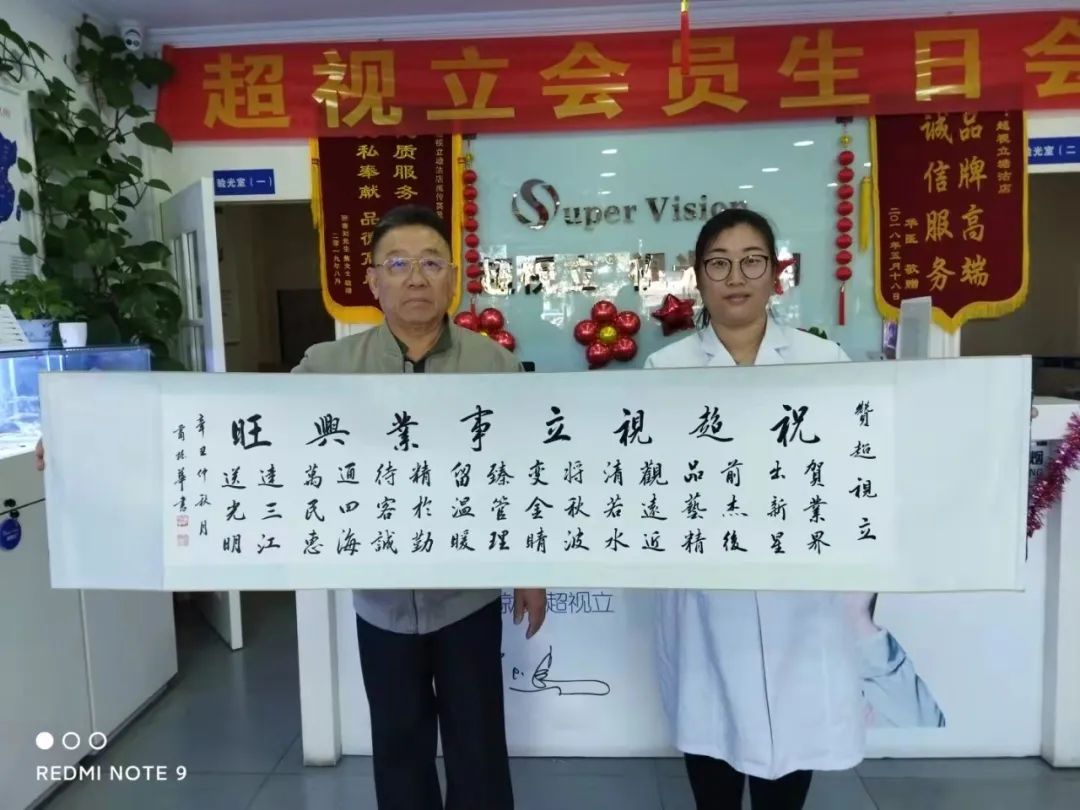 超视立会员生日会
验光室（一）
验光室（二
Super Vision
超视立
质服务
私奉献 品德
二零一九年八月
超视立塘沽店
品牌高端
诚信服务
华医 敬赠
二〇一八年五月十八日
贊超視立
祝超視立事業興旺
賀業界
出新星
前杰後
品藝精
觀遠近
清若水
将秋波
变金睛
臻管理
留温暖
精於勤
待客誠
通四海
萬民惠
達三江
送光明
辛丑仲秋月
華書
超视立
REDMI NOTE 9